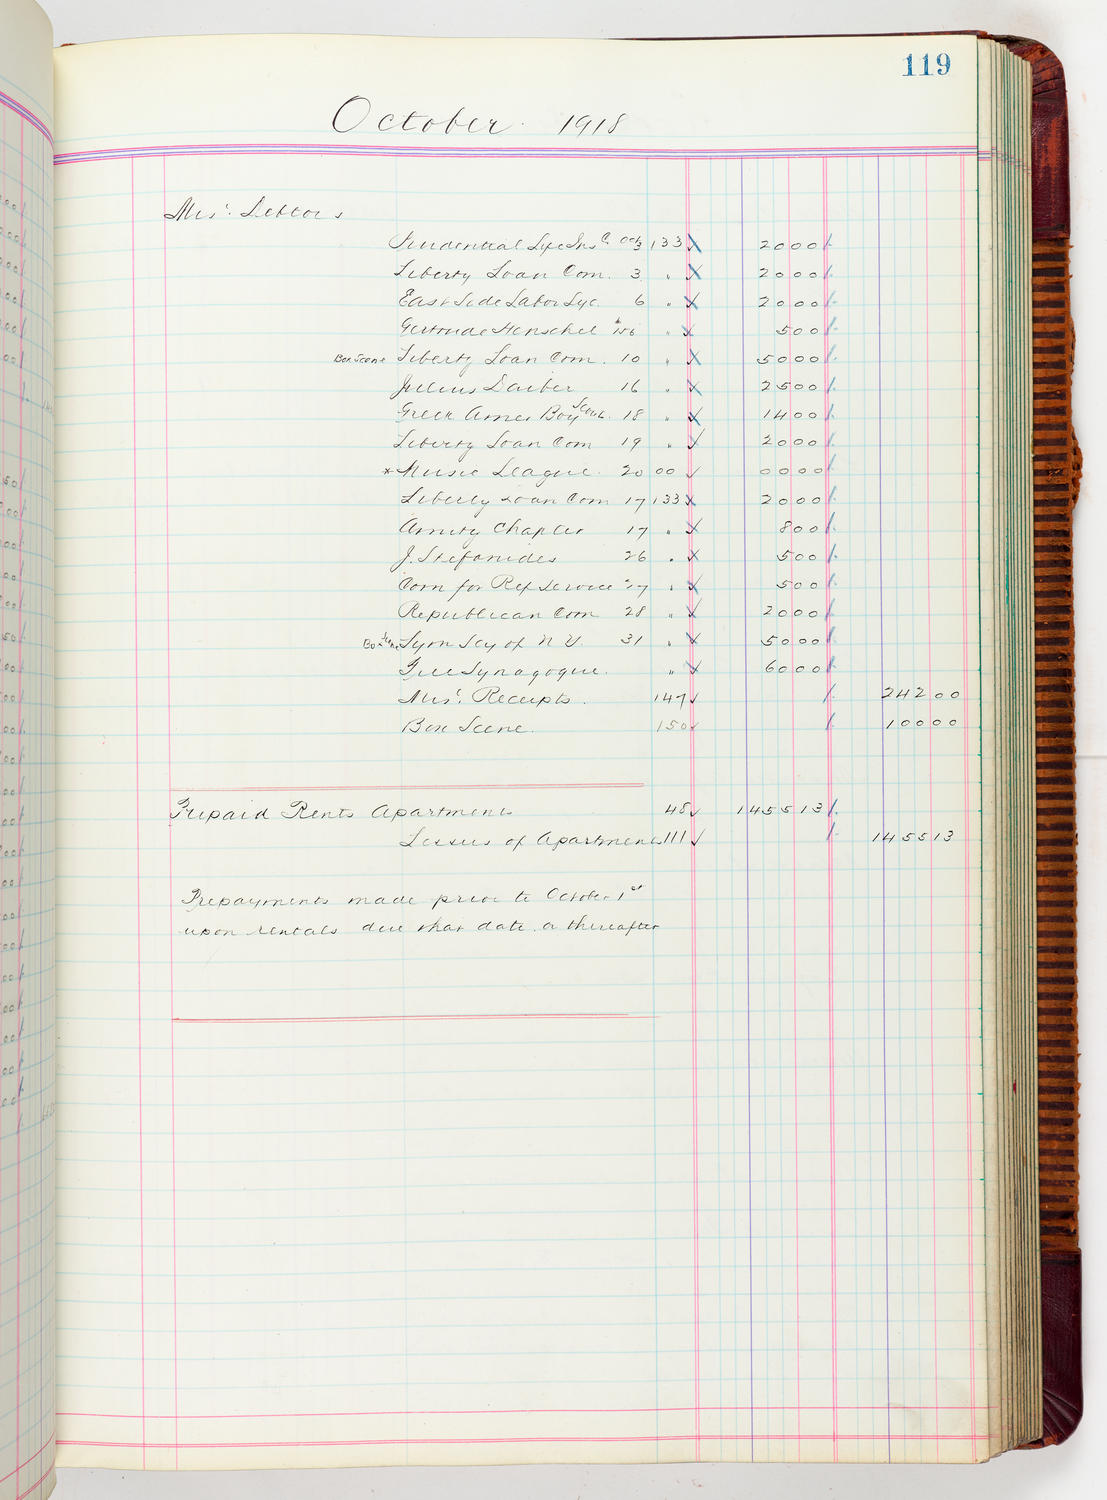 119
October 1918
Mis'. Debtors
Prudential Life Ins Co Oct 3 133 2000
Liberty Loan Com. 3 " 2000
East Side Labor Lyc. 6 " 2000
Gertrude Henschel " 500
Box Scene Liberty Loan Com. 10 " 5000
Julius Daiber 16 " 2500
Greek Amer Boy Scouts 18 " 1400
Liberty Loan Com 19 " 2000
* Music League. 20 00 0000
Liberty Loan Com 17 133 2000
Amity Chapter 17 " 800
J. Stefanides 26 " 500
Com for Rep Service 27 " 500
Republican Com 28 " 2000
Box Scene Symy Scy of N. Y. 31 " 5000
Free Synagogue. " 6000
Mis'. Receipts. 147 24200
Box Scene. 150 10000
Prepaid Rents Apartments 48 145513
Lessees of Apartments 111 145513
Prepayments made prior to October 1st
upon rentals due that date & thereafter